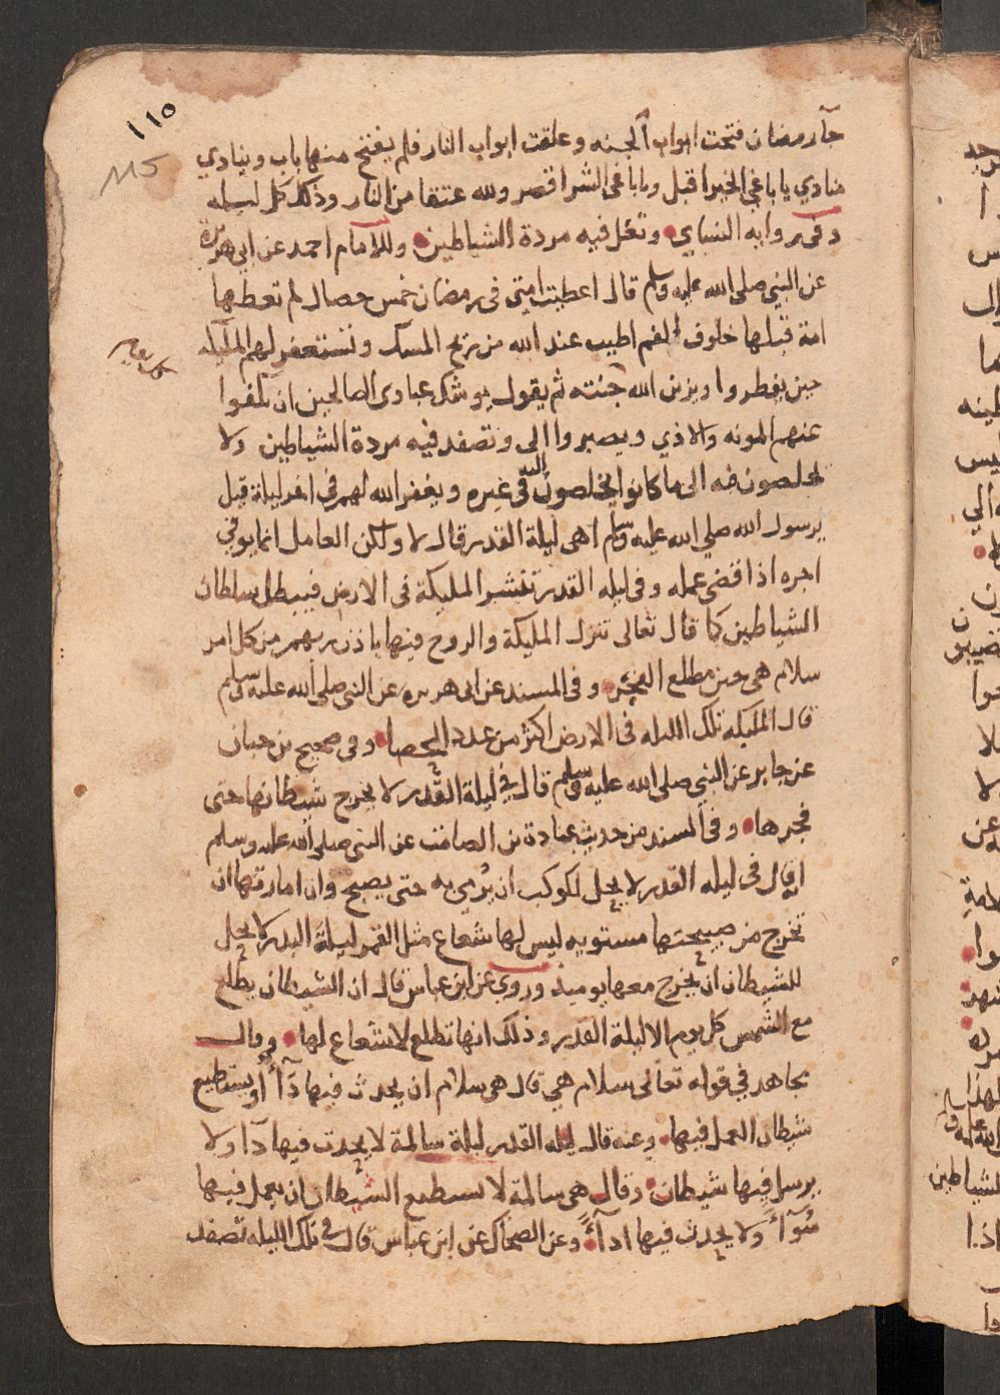 ١١٥
115
جآ رمضان فتحت ابواب الجنه وغلقت ابواب النار فلم يفتح منها باب وينادي
منادي يا باغي الخير اقبل ويا باغي الشر اقصر ولله عتقا من النار وذلك كل ليله
وفي روايه النساي وتغل فيه مردة الشياطين وللامام احمد عن ابي هريرة
عن النبي صلى الله عليه وسلم قال اعطيت امتي في رمضان خمس خصال لم تعطها
امة قبلها خلوف الفم اطيب عند الله من ريح المسك وتستغفر لهم المليكه
حين يفطروا ويزين الله جنته ثم يقول يوشك عبادي الصالحين ان يلقوا
عنهم المونه والاذي ويصيروا الى وتصفد فيه مردة الشياطين ولا
يخلصون فيه الى ما كانوا يخلصون اليه في غيره ويغفر الله لهم في اخر ليلة قيل
يرسول الله صلي الله عليه وسلم اهى ليلة القدر قال لا ولكن العامل انما يوفي
اجره اذا قضى عمله وفي ليله القدر تنتشر المليكة في الارض فيبطل سلطان
الشياطين كما قال تعالى تنزل المليكة والروح فيها باذن ربهم من كل امر
سلام هي حتى مطلع الفجر وفي المسند عن ابى هريره عن النبي صلى الله عليه وسلم
قال المليكه تلك الليله في الارض اكثر من عدد الحصا وفي صحيح بن حبان
عن جابر عن النبي صلى الله عليه وسلم قال في ليلة القدر لا يخرج شيطانها حتى
فجرها وفي المسند من حديث عبادة بن الصامت عن النبي صلى الله عليه وسلم
انه قال في ليله القدر لا يحل لكوكب ان يرمي به حتى يصبح وان امارتها ان
تخرج من صبيحتها مستويه ليس لها شعاع مثل القمر ليلة البدر لا يحل
للشيطان ان يخرج معها يوميذ وروي عن ابن عباس قال ان الشيطان يطلع
مع الشمس كل يوم الا ليلة القدر وذلك انها تطلع لا شعاع لها وقال
مجاهد في قوله تعالى سلام هي قال هي سلام ان يحدث فيها دآ أو يستطيع
شيطان العمل فيها وعنه قال ليله القدر ليلة سالمة لا يحدث فيها دآ ولا
يرسل فيها شيطان وقال هي سالمة لا يستطيع الشيطان ان يعمل فيها
سوآ ولا يحدث فيها اداً وعن الضحاك عن ابن عباس قال في تلك الليله تصفد